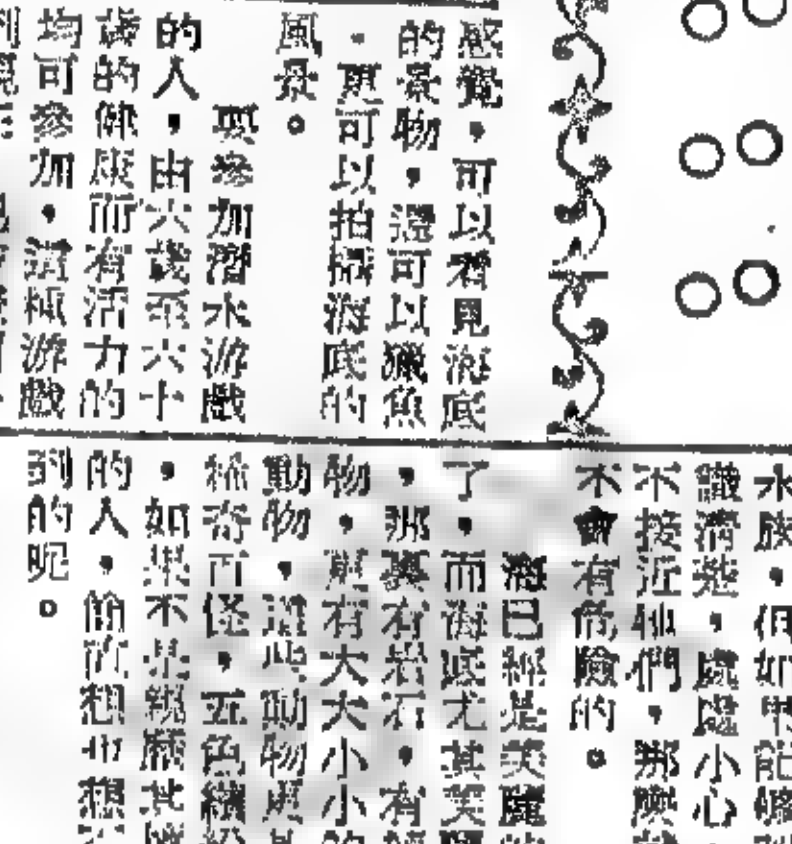 感覺，可以看見海底
的景物，還可以獵魚
，更可以拍攝海底的
風景。
要參加潛水游戲
的人，由六歲至六十
歲的健康而有活力的
均可參加，這種游戲
水族，但如
識清楚，處處小心
不接近牠們，那麽
不會有危險的。
海已經是美麗
了，而海底尤其美
，那裏有岩石，有
物，更有大大小小的
動物，這些動物更
稀奇古怪，五色繽
，如果不是親歷其
的人，簡直想也想
到的呢。